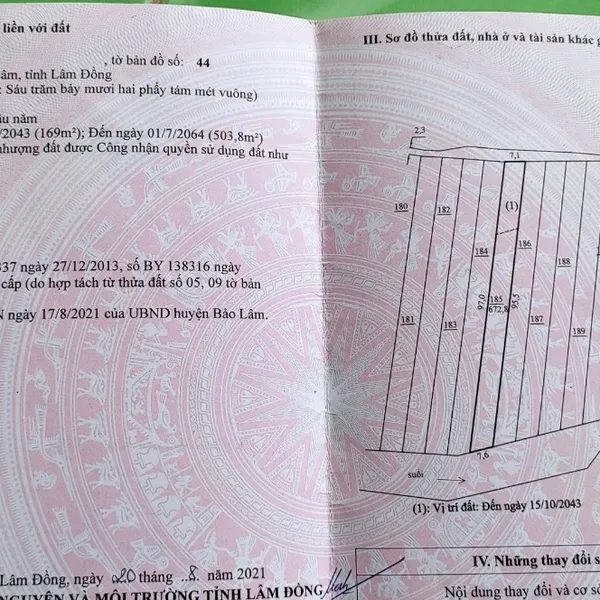 liền với đất
, tờ bản đồ số: 44
âm, tỉnh Lâm Đồng
: Sáu trăm bảy mươi hai phẩy tám mét vuông)
năm
/2043 (169m²); Đến ngày 01/7/2064 (503,8m²)
nhượng đất được Công nhận quyền sử dụng đất như
337 ngày 27/12/2013, số BY 138316 ngày
cấp (do hợp tách từ thửa đất số 05, 09 tờ bản
ngày 17/8/2021 của UBND huyện Bảo Lâm.
Lâm Đồng, ngày 20 tháng 8 năm 2021
NGUYÊN VÀ MÔI TRƯỜNG TỈNH LÂM ĐỒNG
III. Sơ đồ thửa đất, nhà ở và tài sản khác g
2,3
7,1
180
182
(1)
184
186
188
97,0
185
672,8
95,5
181
183
187
189
7,6
suối
(1): Vị trí đất: Đến ngày 15/10/2043
IV. Những thay đổi s
Nội dung thay đổi và cơ sở